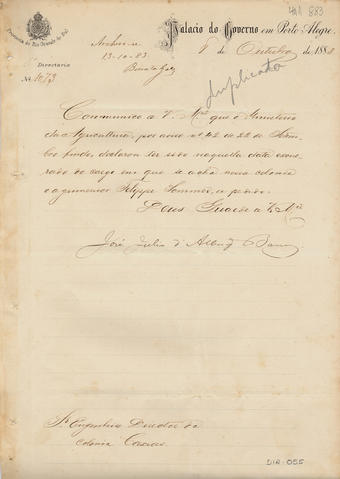 411 883
Palacio do Governo em Porto Alegre.
Provincia do Rio Grande do Sul
1 de Outubro de 1883
Archive-se
13-10-83
Directoria
N. 1073
Duplicata
Communico a V. Mcê que o Ministerio
da Agricultura, por aviso nº 42 de 22 de Setem-
bro findo, declarou ter sido naquella data exone-
rado do cargo em que se acha nessa colonia
o agrimensor Felippe Sommer, a pedido.
Deus Guarde a V. Mcê
José Julio d'Albuqe Barros
Sr. Engenheiro Director da
Colonia Caxias
DIR-055